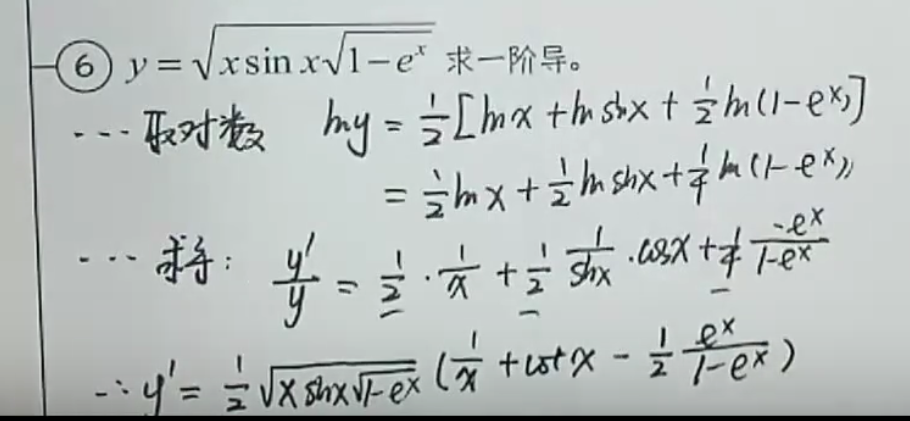 ⑥ y = √(x sin x √(1-eˣ)) 求一阶导。
--- 取对数 ln y = 1/2 [ln x + ln sin x + 1/2 ln(1-eˣ)]
= 1/2 ln x + 1/2 ln sin x + 1/4 ln(1-eˣ)
--- 求导: y'/y = 1/2 · 1/x + 1/2 1/sin x · cos x + 1/4 -eˣ/1-eˣ
∴ y' = 1/2 √(x sin x √(1-eˣ)) (1/x + cot x - 1/2 eˣ/1-eˣ)